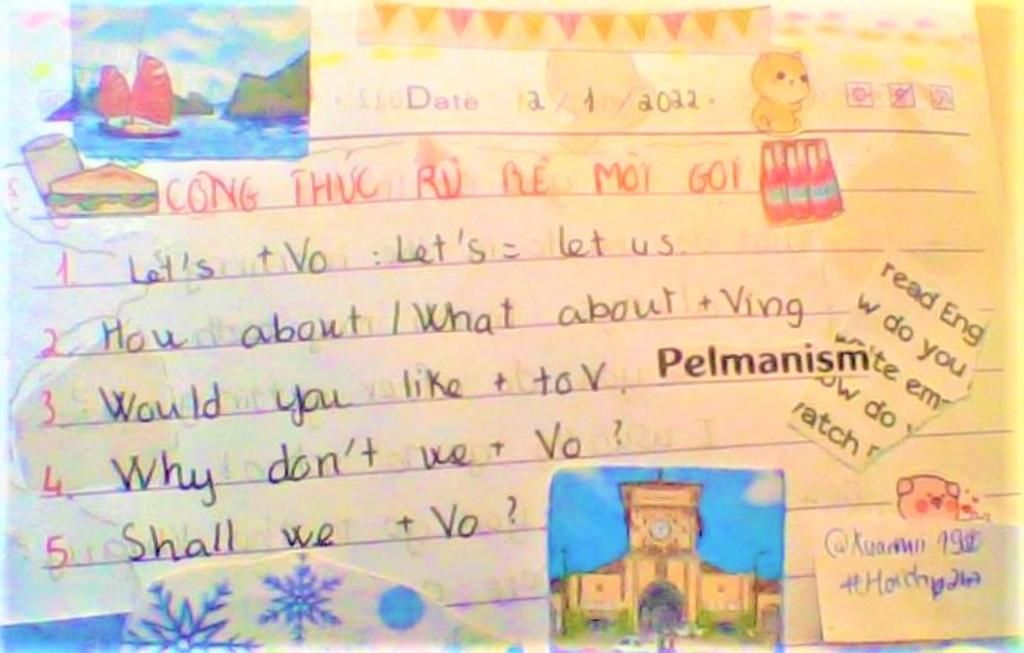 Date 2/1/2022.
CÔNG THỨC RỦ RÊ MỜI GỌI
1. Let's + Vo : Let's = let us.
2 How about / What about + Ving
3 Would you like + to V.
Pelmanism
4. Why don't we + Vo ?
5. Shall we + Vo ?
read Eng
w do you
ite em
ow do
atch